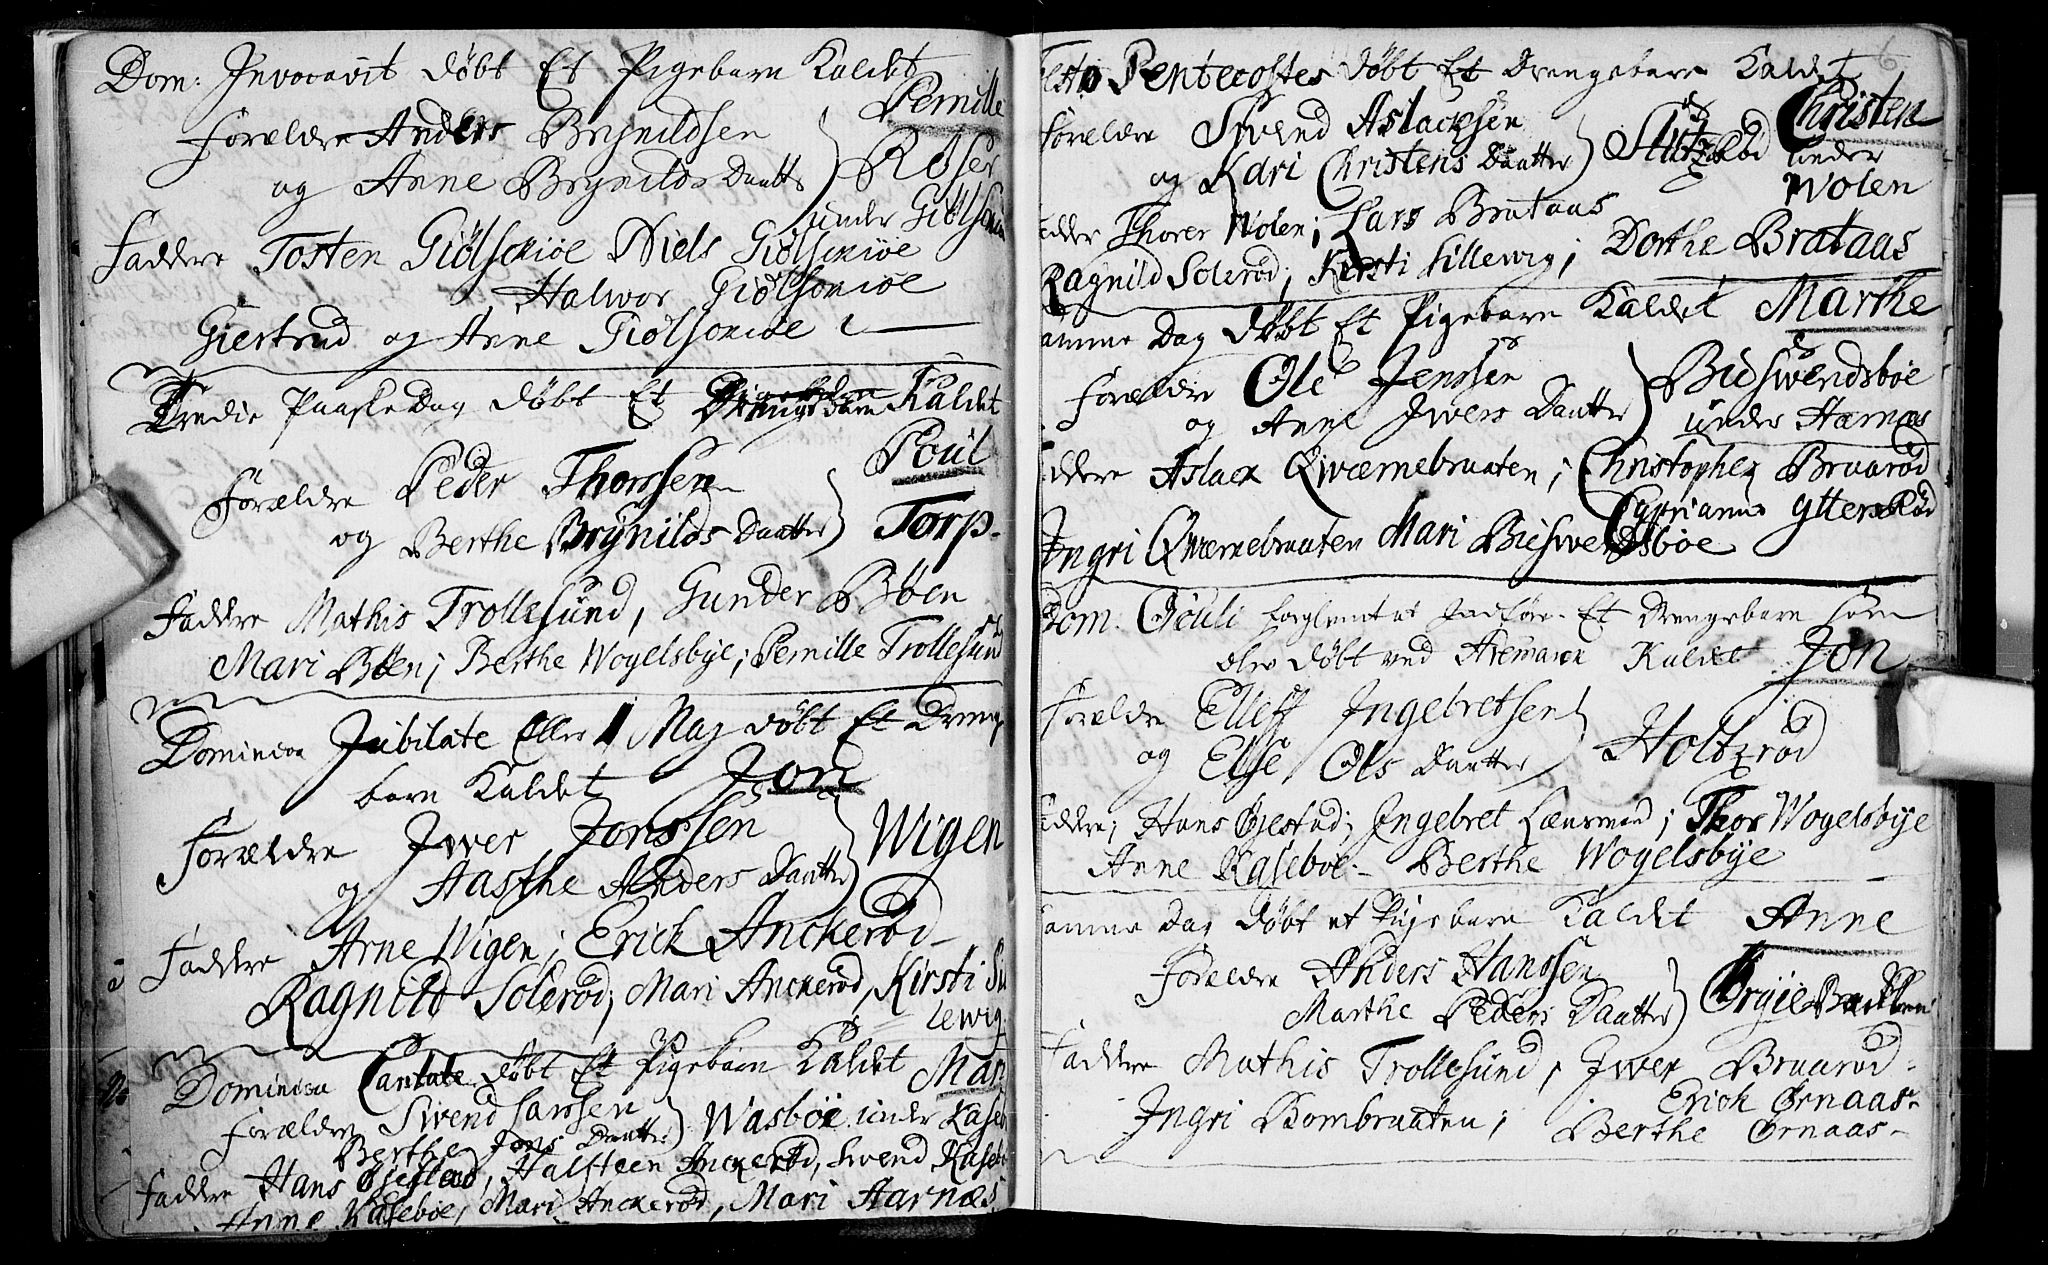 Dom: Invocavit døbt Et Pigebarn Kaldet
Pernille
Forældre Anders Brynildsen
og Anne Brynilds Daatter
Røser
under Giølsøe
Faddere Tosten Giølsomiøe Niels Giølsomiøe
Halwor Giølsomiøe
Giertrud og Anne Giølsomiøe
Tredie Paaske Dag døbt Et Drengebarn Kaldet
Poul
Forældre Peder Thorssen
og Berthe Brynilds Daatter
Torp
Faddere Mathis Trollesund, Gunder Bøen
Mari Bøen; Berthe Wogelsbye; Pernille Trollesund
Dominica Jubilate Eller 1 Maj døbt Et Drenge
barn Kaldet Jon
Forældre Iwer Jonssen
Wigen
og Aasthe Anders Daatter
Faddere Arne Wigen; Erich Anckerød
Ragnild Solerød; Mari Anckerød, Kirsti Sil
lewig
Dominica Cantate døbt Et Pigebarn Kaldet Mari
Forældre Swend Larssen
Wasbøe under Kaseb
Berthe Jons Daatter
Faddere Hans Øiestad, Halsteen Anckerød, Swend Kasebø
Anne Kasebøe, Mari Anckerød, Mari Aarnæs
6
Festo Pentecostes døbt Et Drengebarn Kaldet
Christen
Forældre Swend Aslacksen
og Kari Christens Daatter
Slutzrød under
Wolen
Faddere Thorer Wolen; Lars Brataas
Ragnild Solerød; Kirsti Sillewig; Dorthe Brataas
Samme Dag døbt Et Pigebarn Kaldet Marthe
Forældre Ole Jenssen
Bieswendsbøe
og Anne Iwers Daatter
under Harnæs
Faddere Aslack Qwærnebraaten; Christopher Bruarød
Cyprianus Ytterskød
Ingri Qwærnebraaten Mari Bieswendsbøe
Dom. Oculi forglemt at Indføre Et Drengebarn som
blev døbt ved Aremarck Kaldet Jon
Forældre Elleff Ingebretsen
Holtzrød
og Else Ols Daatter
Faddere; Hans Øiestad; Ingebret Lænsmand; Thor Wogelsbye
Anne Kasebøe Berthe Wogelsbye
Samme Dag døbt et Pigebarn Kaldet Anne
Forældre Anders Hanssen
Ørgiebacken
Marthe Peders Daatter
Faddere Mathis Trollesund, Iwer Bruarød
Erich Ørnaas
Ingri Bombraaten; Berthe Ørnaas